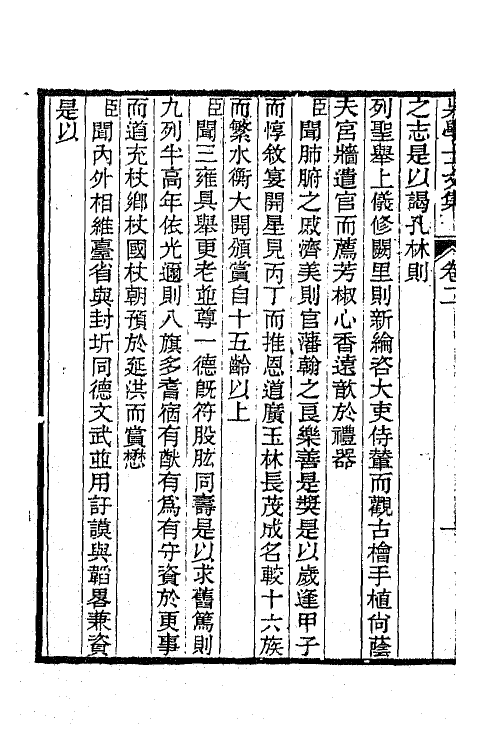 吳學士文集 卷二
之志是以謁孔林則
列聖舉上儀修闕里則新綸咨大吏侍輦而觀古檜手植尙蔭
天宮牆遣官而薦芳椒心香遠歆於禮器
臣聞肺腑之戚濟美則官藩翰之良樂善是奬是以歲逢甲子
而惇敘宴開星見丙丁而推恩道廣玉林長茂成名較十六族
而繁水衡大開頒賞自十五齡以上
臣聞三雍具舉更老並尊一德旣符股肱同壽是以求舊篤則
九列半高年依光邇則八旗多耆宿有猷有爲有守資於更事
而道充杖鄉杖國杖朝預於延洪而賞懋
臣聞內外相維臺省與封圻同德文武並用訏謨與韜畧兼資
是以